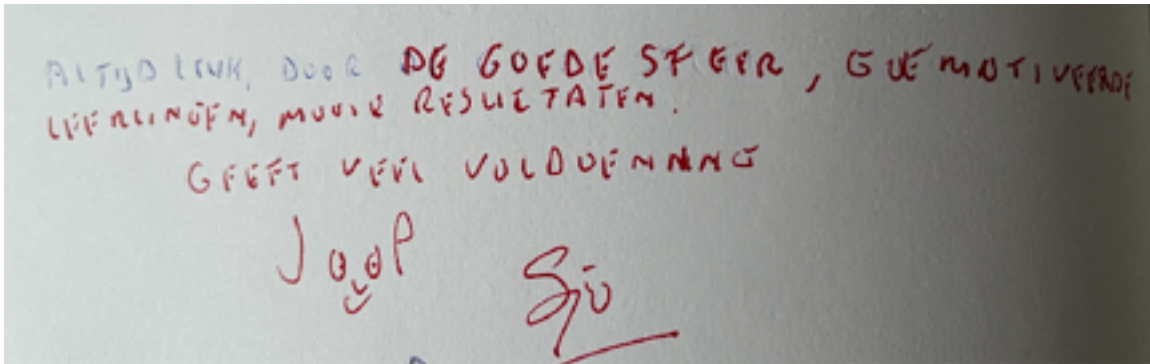 ALTIJD LEUK, DOOR DE GOEDE SFEER, GUEMOTIVEERDE
LEERLINGEN, MOOIE RESULTATEN.
GEEFT VEEL VOLDOENNNG
JOOP